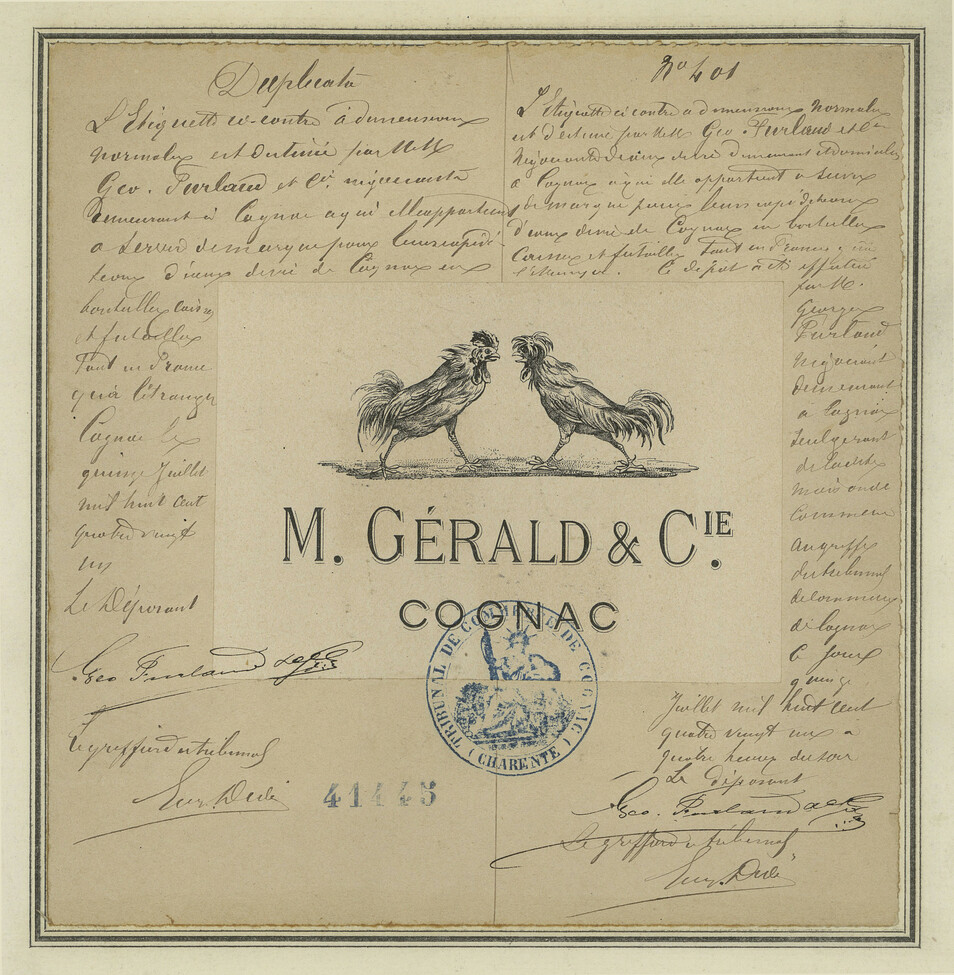 Duplicata
L'Etiquette ci-contre à dimensions
normales est destinée par MM
Geo. Furlaud et Cie négociants
demeurant à Cognac à qui elle appartient
à servir de marque pour leurs expédi-
tions d'eaux de vie de Cognac en
bouteilles caisses
et futailles
Tant en France
qu'à l'étranger
Cognac le
quinze Juillet
mil huit cent
quatre vingt
un
Le Déposant
Geo Furlaud
Le greffier du tribunal
41445
No 401
L'Etiquette ci contre à dimensions normales
est destinée par MM Geo. Furlaud et Cie
Négociants d'eaux de vie demeurant et domiciliés
à Cognac à qui elle appartient à servir
de marque pour leurs expéditions
d'eaux de vie de Cognac en bouteilles
Caisses et futailles Tant en France qu'à
l'étranger. Ce dépôt a été effectué
par M.
Georges
Furlaud
Négociant
demeurant
à Cognac
seul gérant
de la dite
maison de
Commerce
au greffe
du tribunal
de commerce
de Cognac
Ce jour
quinze
Juillet mil huit cent
quatre vingt un à
quatre heures du soir
Le déposant
Geo. Furlaud
Le greffier du tribunal
M. GÉRALD & CIE.
COGNAC
TRIBUNAL DE COMMERCE DE COGNAC
(CHARENTE)